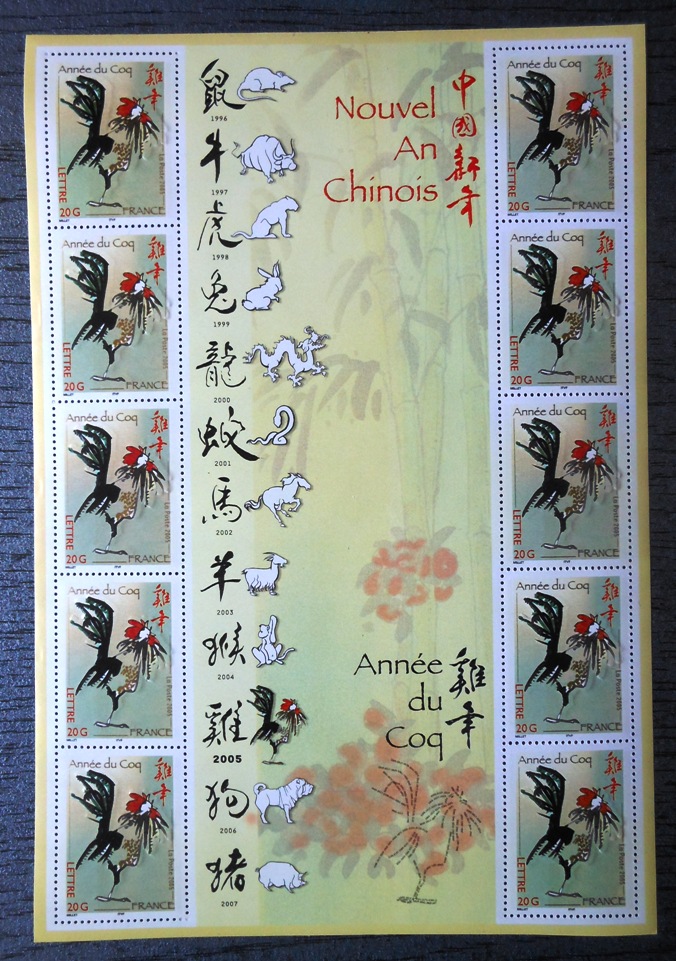 Année du Coq
雞年
La Poste 2005
LETTRE
20 G
FRANCE
Année du Coq
雞年
La Poste 2005
LETTRE
20 G
FRANCE
Année du Coq
雞年
La Poste 2005
LETTRE
20 G
FRANCE
Année du Coq
雞年
La Poste 2005
LETTRE
20 G
FRANCE
Année du Coq
雞年
La Poste 2005
LETTRE
20 G
FRANCE
鼠
1996
牛
1997
虎
1998
兔
1999
龍
2000
蛇
2001
馬
2002
羊
2003
猴
2004
雞
2005
狗
2006
猪
2007
Nouvel
An
Chinois
中國新年
Année
du
Coq
雞年
Année du Coq
雞年
La Poste 2005
LETTRE
20 G
FRANCE
Année du Coq
雞年
La Poste 2005
LETTRE
20 G
FRANCE
Année du Coq
雞年
La Poste 2005
LETTRE
20 G
FRANCE
Année du Coq
雞年
La Poste 2005
LETTRE
20 G
FRANCE
Année du Coq
雞年
La Poste 2005
LETTRE
20 G
FRANCE